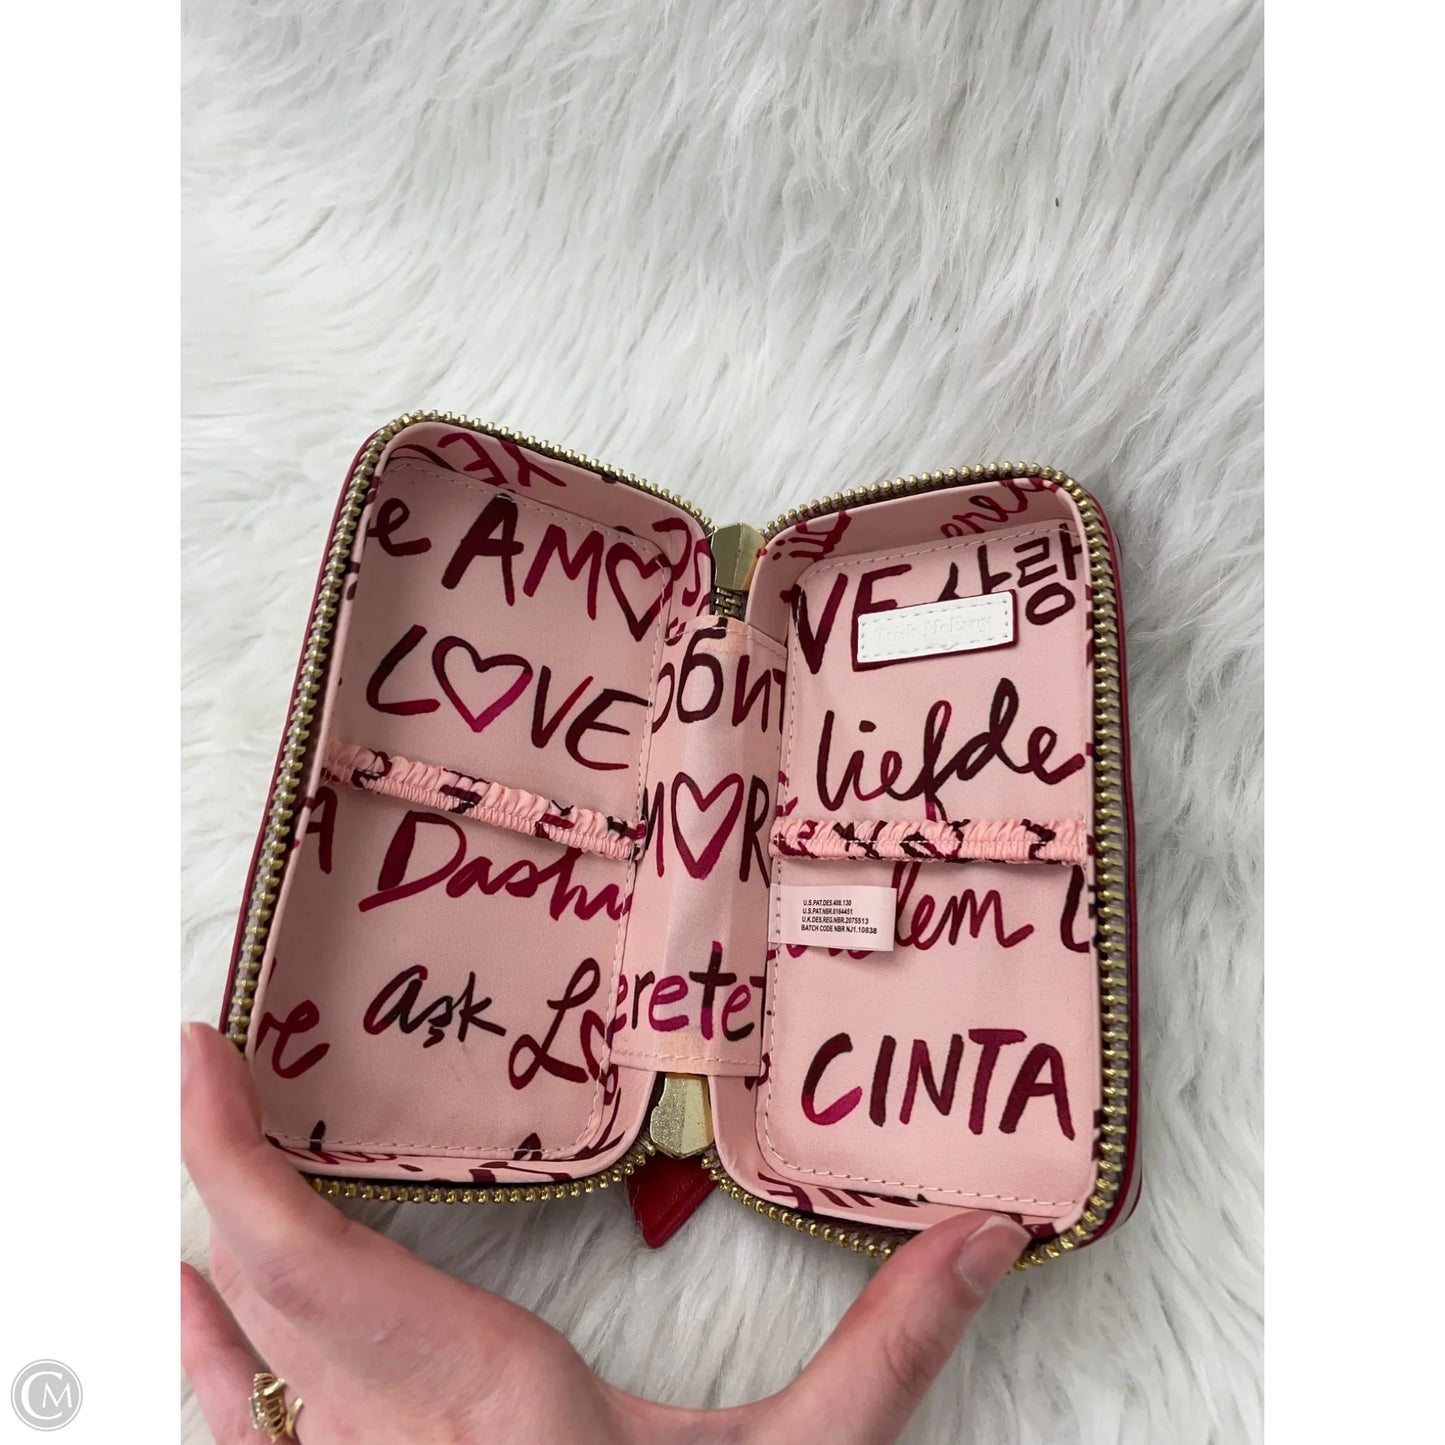 AMO
LOVE
Dashu
aşk
Lo
обит
MOR
eretet
VE 사랑
Trish McEvoy
liefde
U.S.PAT.DES.408.130
U.S.PAT.NBR.6164451
U.K.DES.REG.NBR.2075513
BATCH CODE NBR NJ1.10838
lem
CINTA
CM